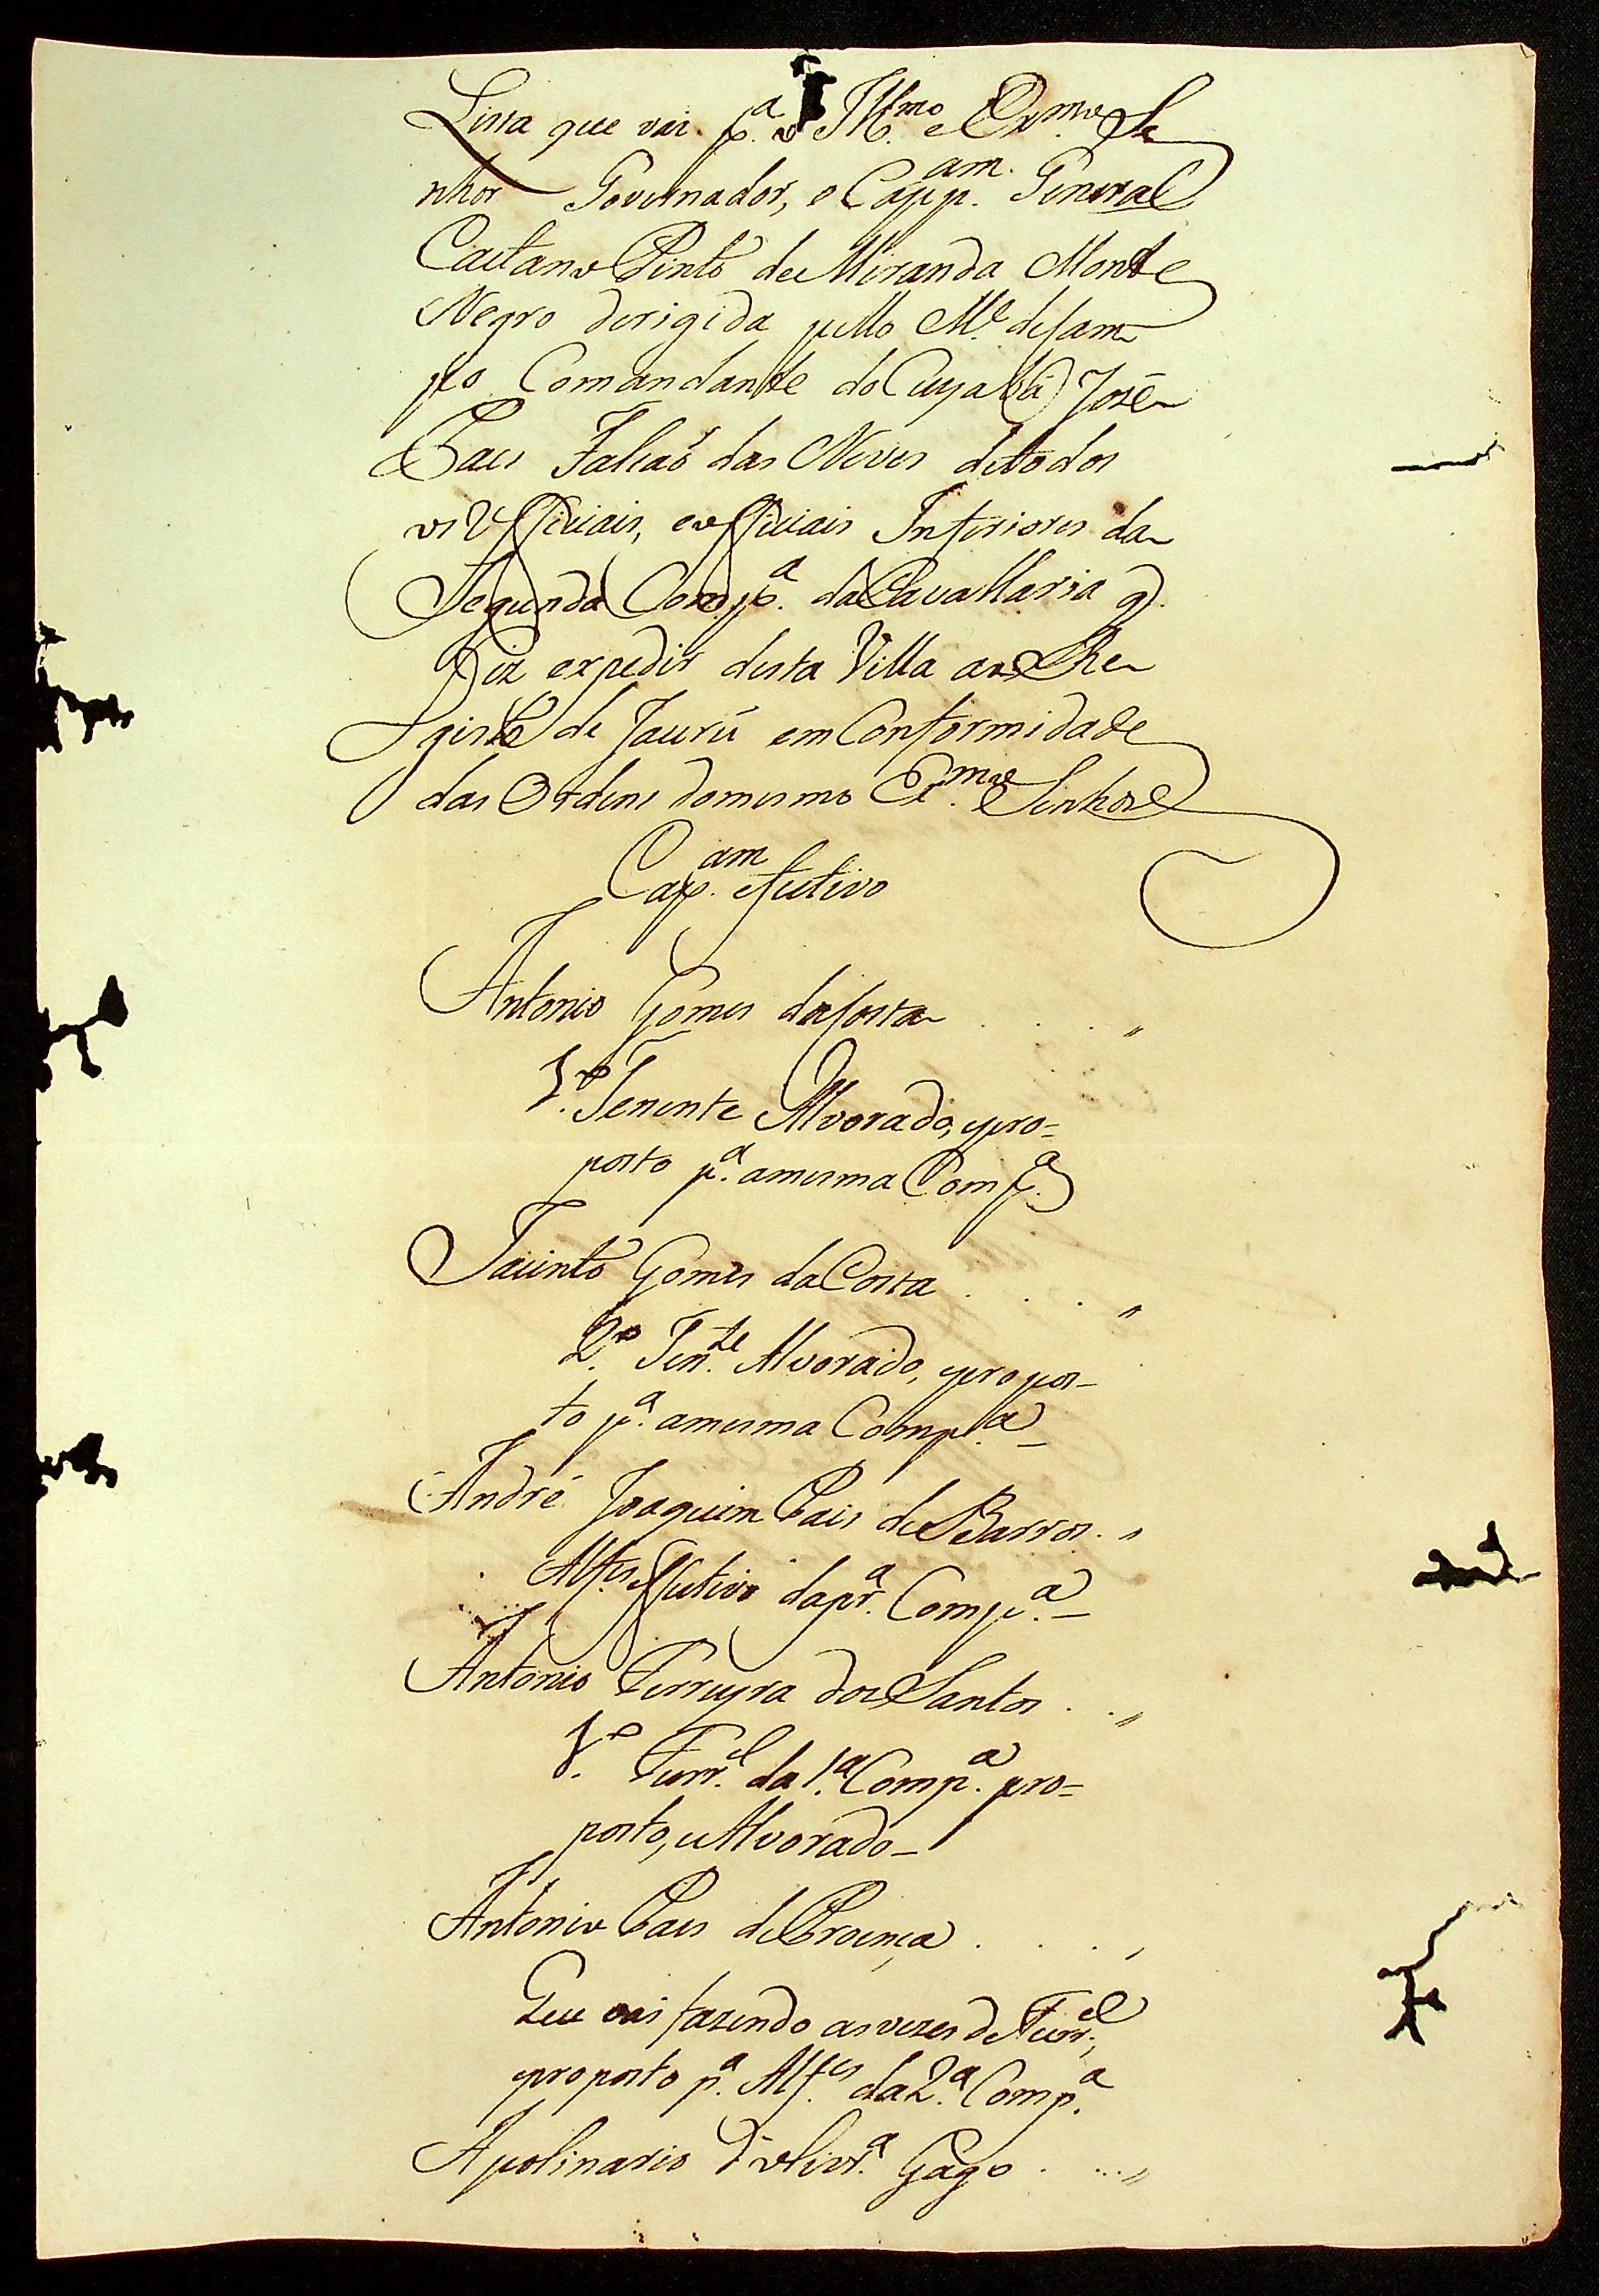 Lista que vai p.ª o Ill.mo e Ex.mo Se
nhor Governador, e Capp.am General
Caetano Pinto de Miranda Monte
Negro derigida pello M.e de Cam
po Comandante do Cuyabá José
Paes Falcaõ das Neves de todos
os Officiais, e officiais Inferiores da
Segunda Comp.ª da Cavallaria q.
fiz expedir desta Villa ao Re
gisto de Jaurú em Conformidade
das Ordens do mesmo Ex.mo Senhor
Cap.am efectivo
Antonio Gomes da Costa . . . "
1.º Tenente Alvorado, e pro=
posto p.ª a mesma Comp.ª
Jacinto Gomes da Costa . . . "
2.º Ten.te Alvorado, e propos_
to p.ª a mesma Comp.ª _
André Joaquim Paes de Barros . "
Alf.es effectivo da pr.ª Comp.ª _
Antonio Ferreyra dos Santos . . "
1.º Furr.el da 1.ª Comp.ª pro=
posto, e Alvorado _
Antonio Paes de Proença . . . ,
Que vai fazendo as vezes de Furr.el,
e proposto p.ª Alf.es da 2.ª Comp.ª
Apolinario d'oLivr.ª Gago . ... "